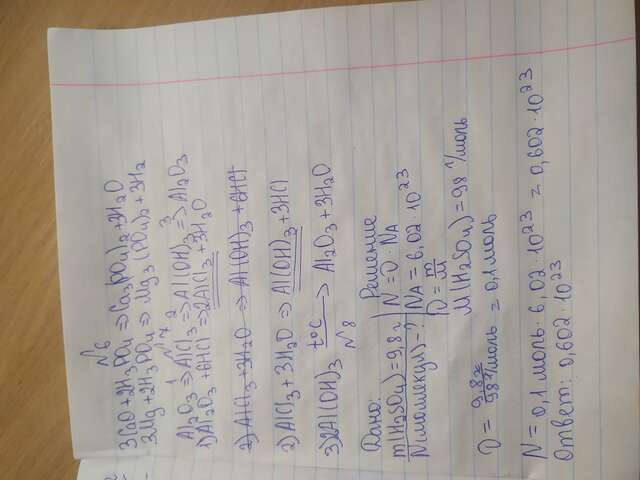 №6
3CaO + 2H3PO4 => Ca3(PO4)2 + 3H2O
3Mg + 2H3PO4 => Mg3(PO4)2 + 3H2
№7
Al2O3 =>1 AlCl3 =>2 Al(OH)3 =>3 Al2O3
1) Al2O3 + 6HCl => 2AlCl3 + 3H2O
2) AlCl3 + 3H2O => Al(OH)3 + 6HCl
2) AlCl3 + 3H2O => Al(OH)3 + 3HCl
3) 2Al(OH)3 t°C → Al2O3 + 3H2O
№8
Дано: Решение
m(H2SO4) = 9,8 г N = υ · NA
N(молекул) - ? NA = 6,02 · 10^23
υ = m/M
M(H2SO4) = 98 г/моль
υ = 9,8 г / 98 г/моль = 0,1 моль
N = 0,1 моль · 6,02 · 10^23 = 0,602 · 10^23
Ответ: 0,602 · 10^23